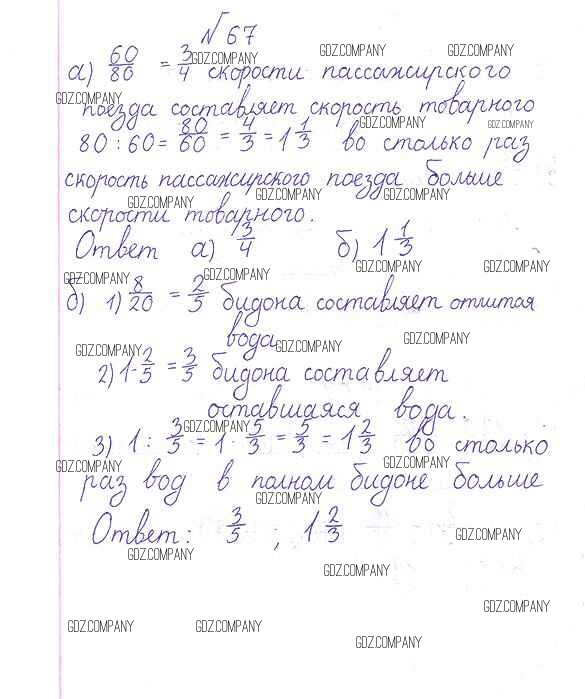 № 67
а) 60/80 = 3/4 скорости пассажирского
поезда составляет скорость товарного
80 : 60 = 80/60 = 4/3 = 1 1/3 во столько раз
скорость пассажирского поезда больше
скорости товарного.
Ответ а) 3/4 б) 1 1/3
б) 1) 8/20 = 2/5 бидона составляет отлитая
вода
2) 1 - 2/5 = 3/5 бидона составляет
оставшаяся вода.
3) 1 : 3/5 = 1 · 5/3 = 5/3 = 1 2/3 во столько
раз вод в полном бидоне больше
Ответ: 3/5 ; 1 2/3
GDZ.COMPANY GDZ.COMPANY GDZ.COMPANY
GDZ.COMPANY GDZ.COMPANY GDZ.COMPANY
GDZ.COMPANY GDZ.COMPANY GDZ.COMPANY
GDZ.COMPANY GDZ.COMPANY
GDZ.COMPANY GDZ.COMPANY
GDZ.COMPANY GDZ.COMPANY GDZ.COMPANY
GDZ.COMPANY
GDZ.COMPANY GDZ.COMPANY
GDZ.COMPANY
GDZ.COMPANY
GDZ.COMPANY
GDZ.COMPANY
GDZ.COMPANY
GDZ.COMPANY GDZ.COMPANY
GDZ.COMPANY